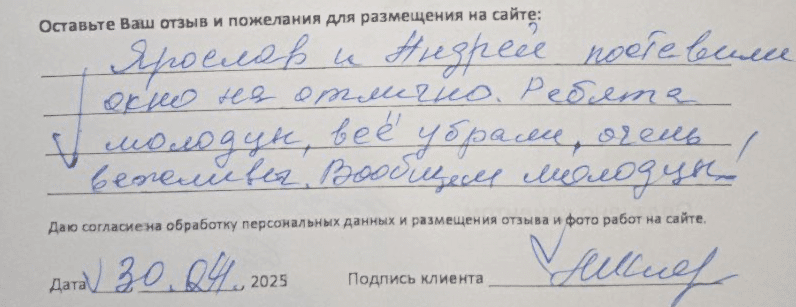 Оставьте Ваш отзыв и пожелания для размещения на сайте:
Ярослав и Андрей поставили
окно на отлично. Ребята
молодцы, всё убрали, очень
вежливы. Вообщем молодцы!
Даю согласие на обработку персональных данных и размещения отзыва и фото работ на сайте.
Дата 30.04. 2025 Подпись клиента